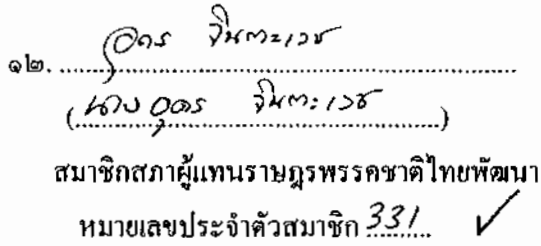 ๑๒. อุดร จินตะเวช
(นางอุดร จินตะเวช)
สมาชิกสภาผู้แทนราษฎรพรรคชาติไทยพัฒนา
หมายเลขประจำตัวสมาชิก 331